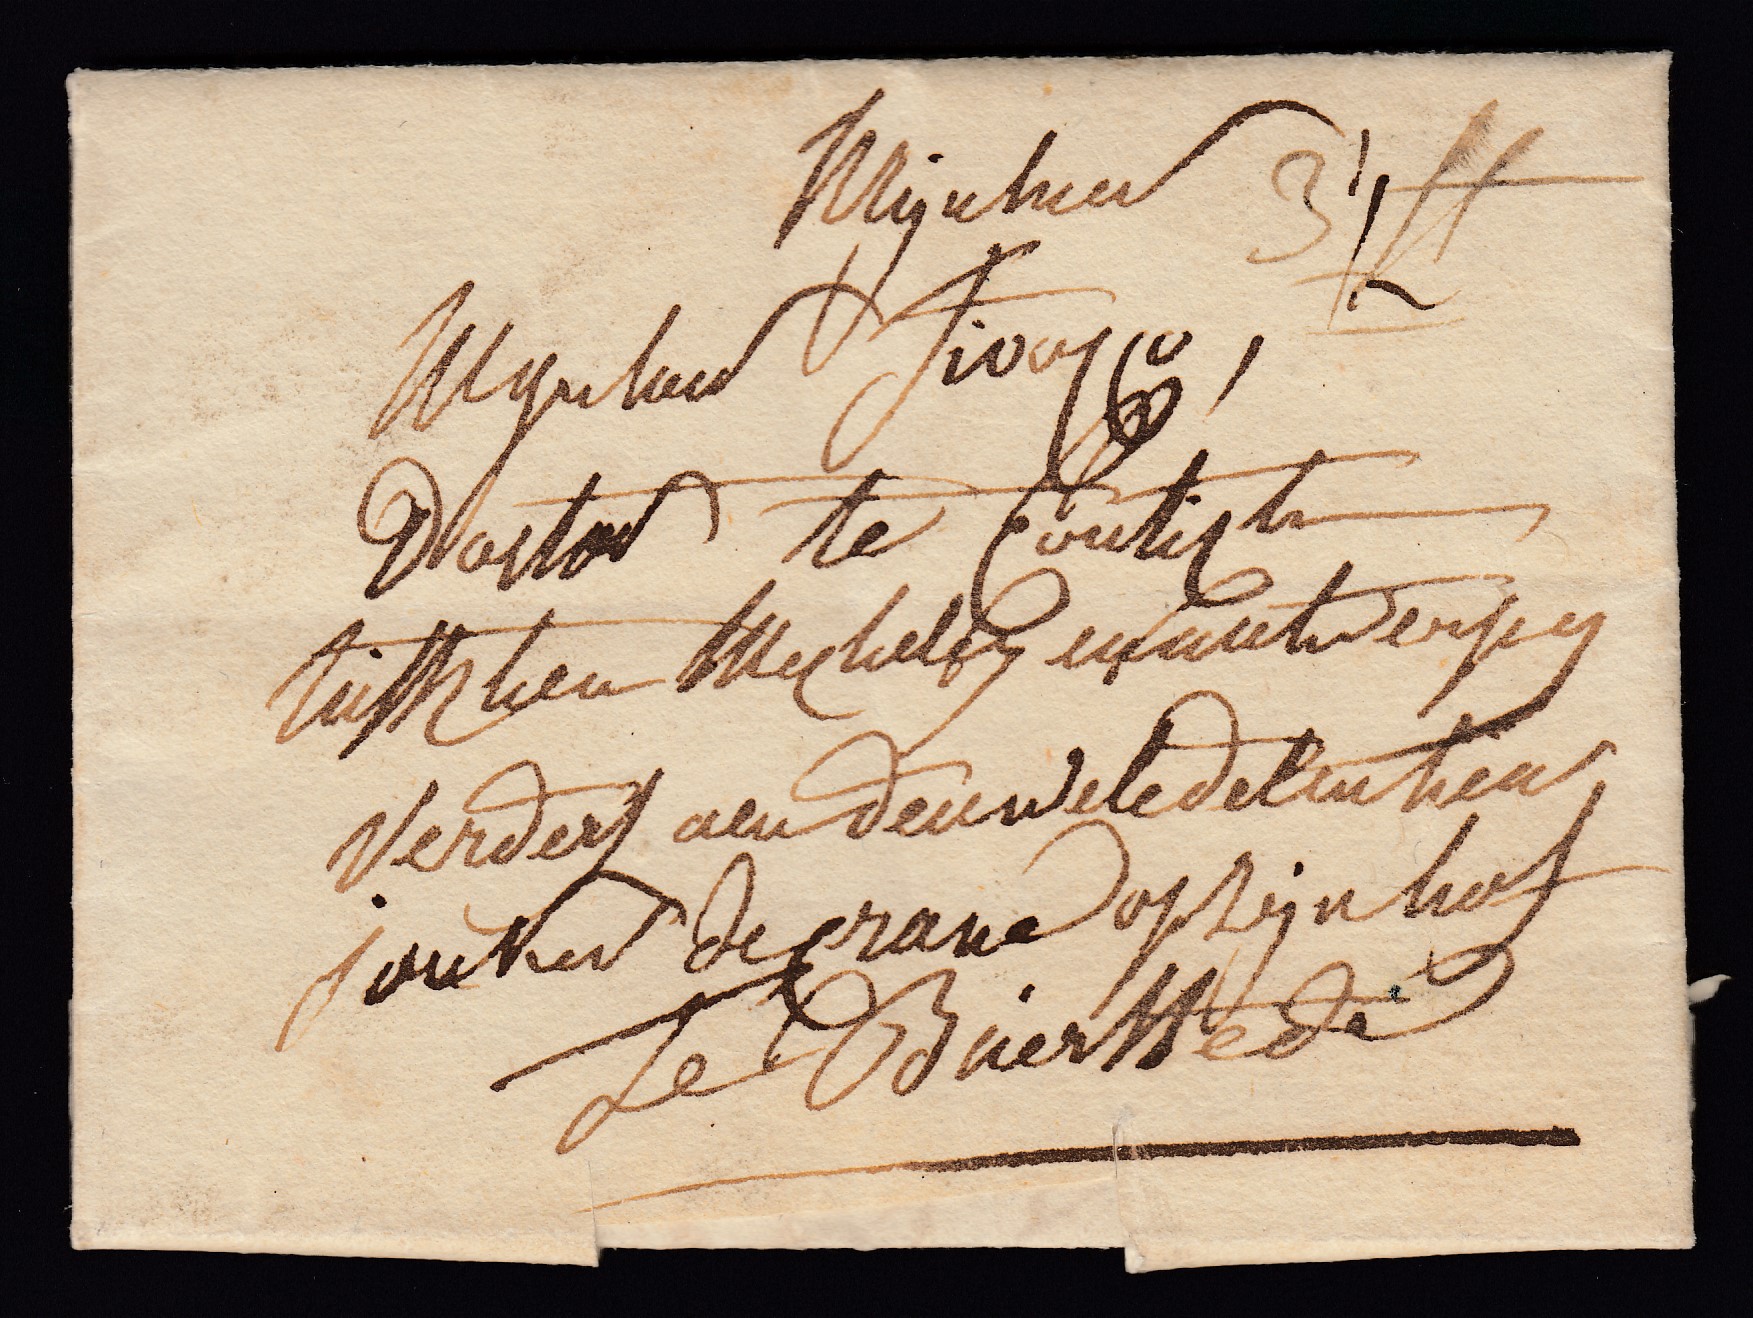 Mijnheer 3 1/2 ff
Mynheer
Pastor te Contich
tusschen Mechelen en antwerpen
verders aen den wel edelen heer
jonker de crane op zijn hof
te Bierstede